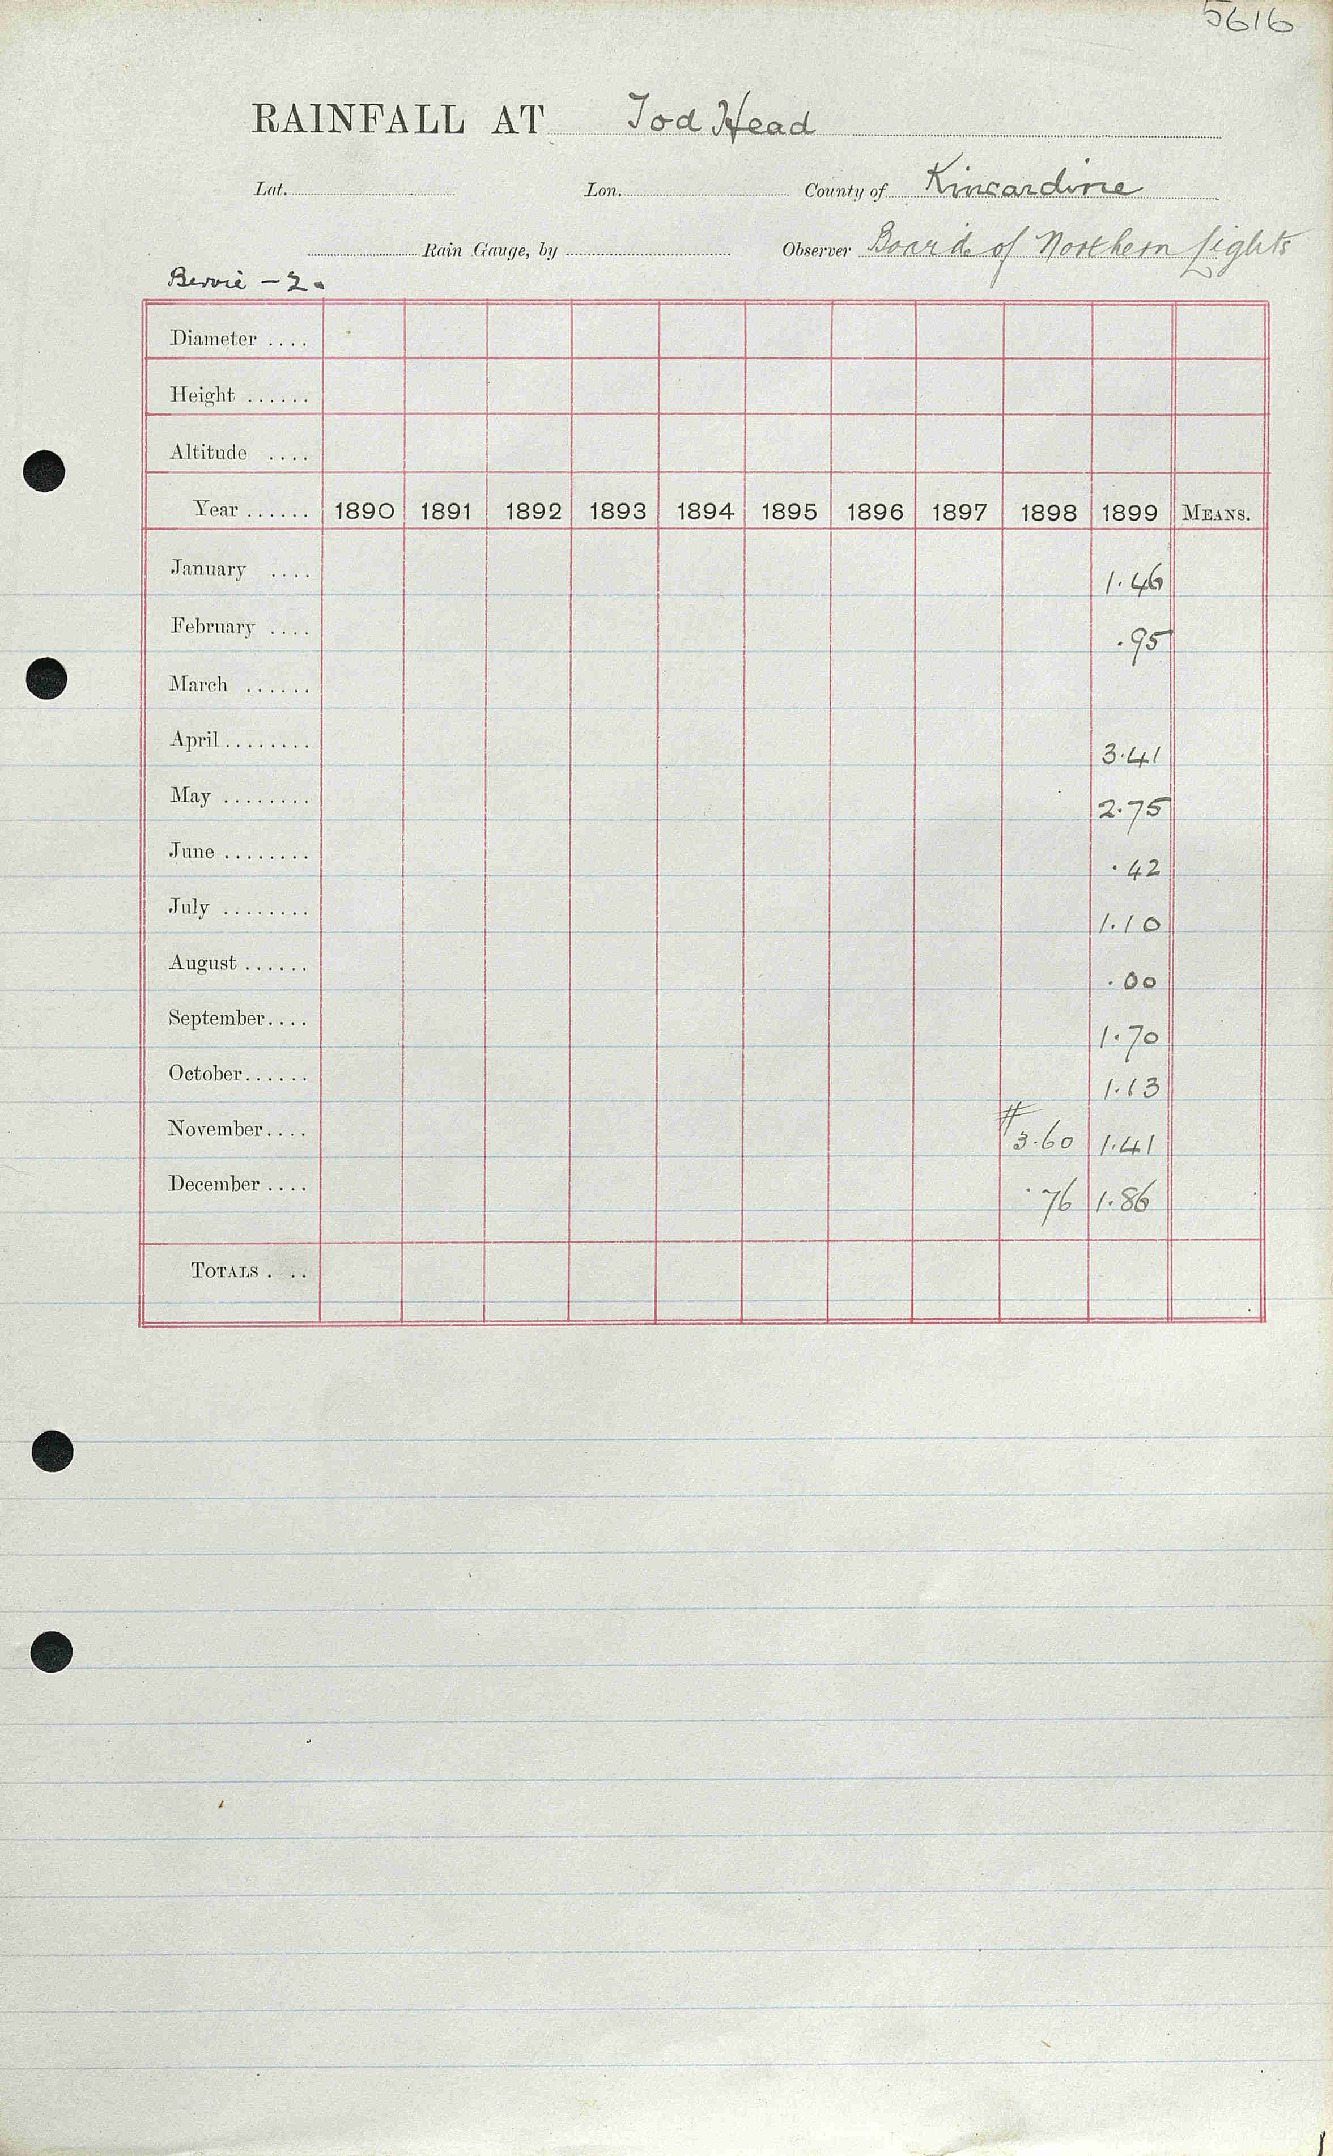 5616
RAINFALL AT Tod Head
Lat. Lon. County of Kincardine
Rain Gauge, by Observer Board of Northern Lights
Bervie - 2.
Diameter ....
Height ......
Altitude ....
Year ...... 1890 1891 1892 1893 1894 1895 1896 1897 1898 1899 MEANS.
January .... 1.46
February .... .95
March ......
April ........ 3.41
May ........ 2.75
June ........ .42
July ........ 1.10
August ...... .00
September.... 1.70
October...... 1.13
November.... # 3.60 1.41
December .... .76 1.86
TOTALS . ..